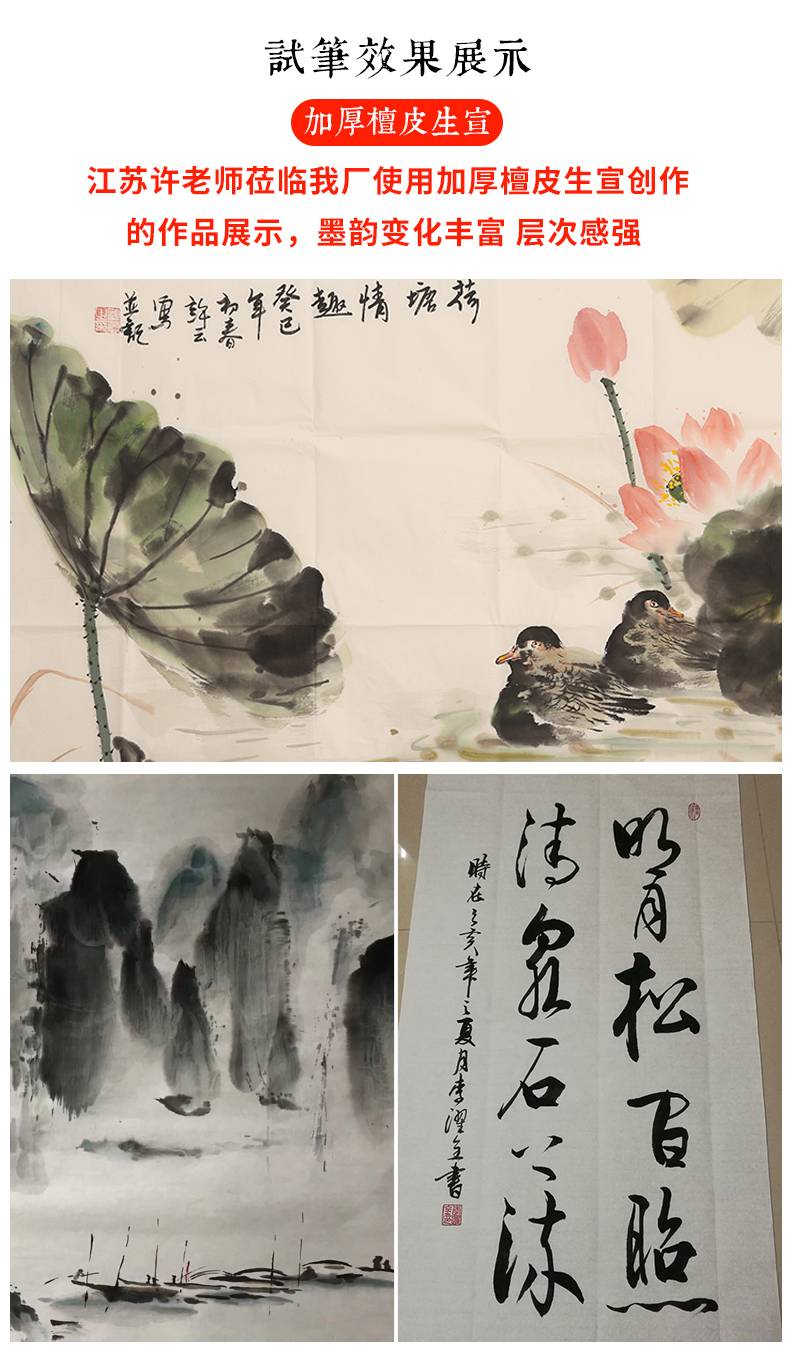 試筆效果展示
加厚檀皮生宣
江苏许老师莅临我厂使用加厚檀皮生宣创作
的作品展示，墨韵变化丰富 层次感强
荷塘情趣
癸巳
年
初春
許云
寫
並記
明月松间照
清泉石上流
時在己亥年之夏月李濯全書